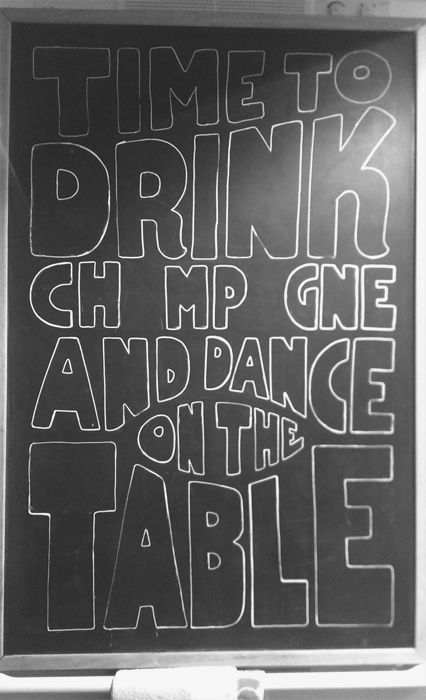 TIME TO
DRINK
CH MP GNE
AND DANCE
ON THE
TABLE